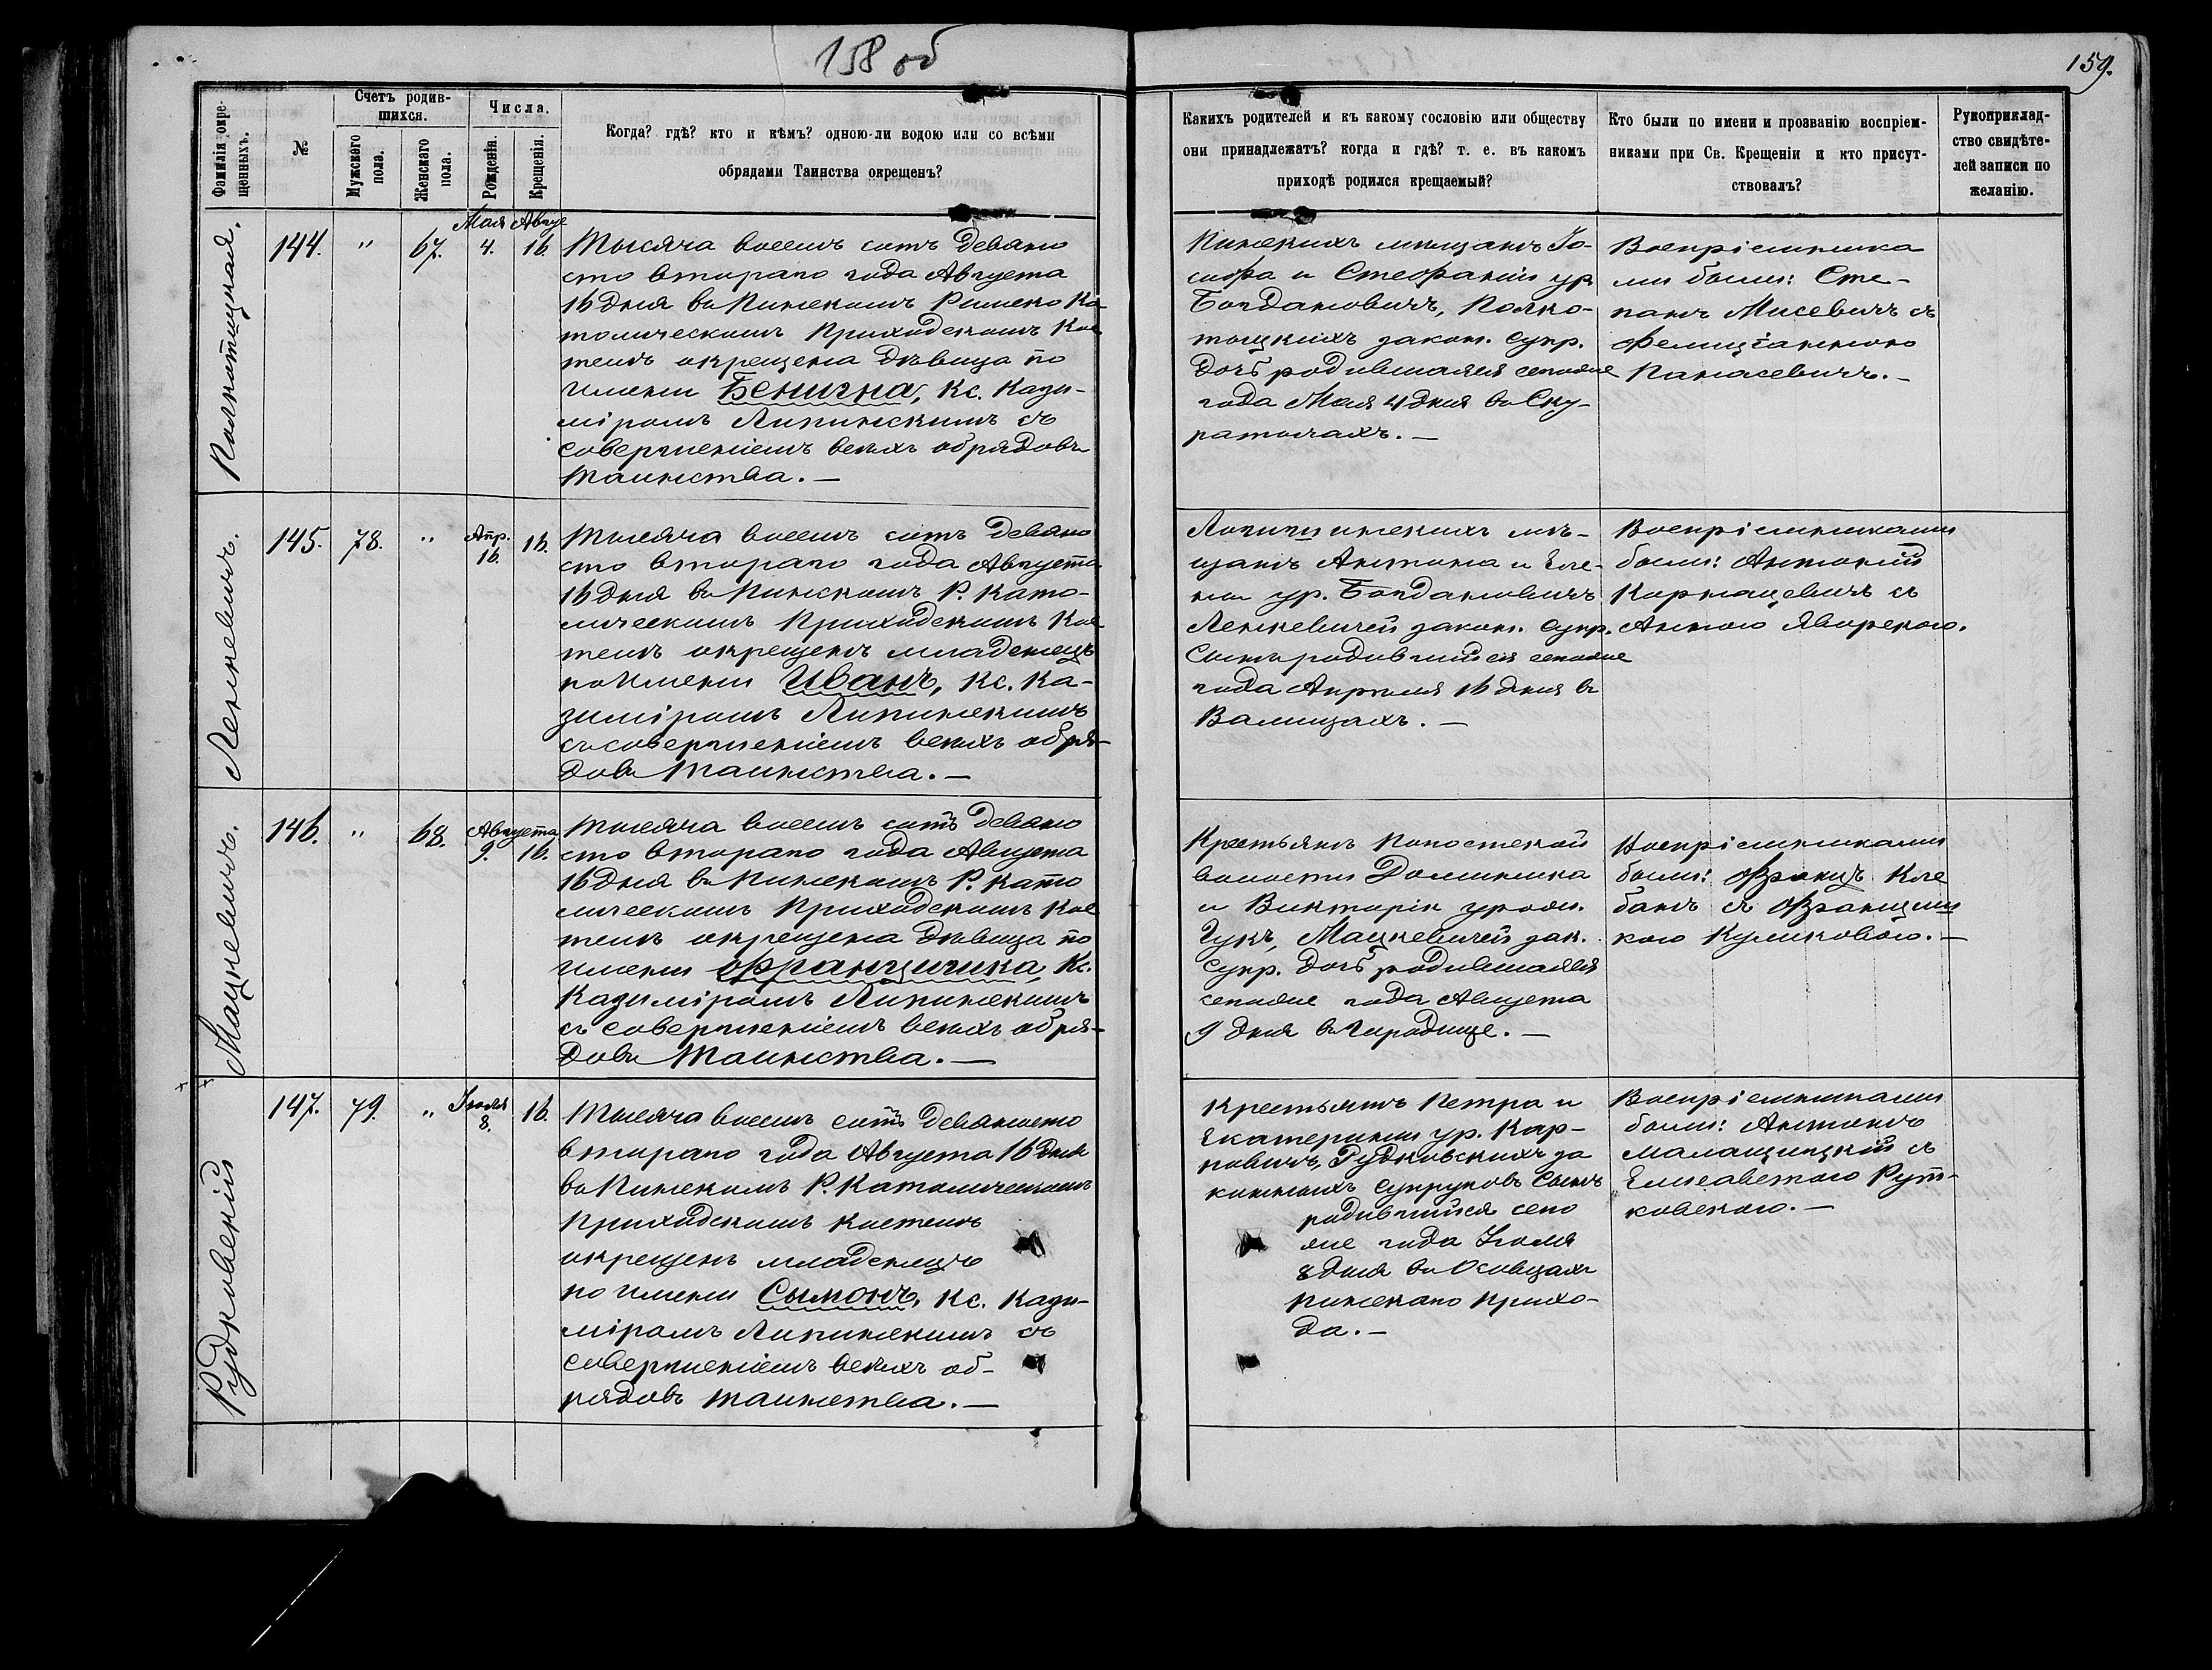 158 об
159.
Фамилія окре-
щенныхъ.
№
Счетъ родив-
шихся.
Мужскаго
пола.
Женскаго
пола.
Числа.
Рожденія.
Крещенія.
Когда? гдѣ? кто и кѣмъ? одною-ли водою или со всѣми
обрядами Таинства окрещенъ?
Какихъ родителей и къ какому сословію или обществу
они принадлежатъ? когда и гдѣ? т. е. въ какомъ
приходѣ родился крещаемый?
Кто были по имени и прозванію воспріем-
никами при Св. Крещеніи и кто присут-
ствовалъ?
Рукоприклад-
ство свидѣте-
лей записи по
желанію.
144.
"
67.
Мая
4.
Авгус
16.
Тысяча восемь сотъ девяно
сто втораго года Августа
16 дня въ Пинскомъ Римско Ка
толическомъ Приходскомъ Кос
телѣ окрещена дѣвица по
имени Бенигна, Кс. Кази-
міромъ Липинскимъ съ
совершеніемъ всѣхъ обрядовъ
Таинства.—
Пинскихъ мѣщанъ Іо-
сифа и Стефаніи ур
Богдановичъ,
законн. супр.
дочь родившаяся сегоже
года Мая 4 дня въ Ску-
ратахъ.—
Воспріемника
ми были: Сте-
панъ Мисевичъ съ
Фелиціанною
Панасевичъ.—
Ленкевичъ.
145.
78.
"
Апр.
16.
16.
Тысяча восемь сотъ девяно
сто втораго года Августа
16 дня въ Пинскомъ Р. Като-
лическомъ Приходскомъ Кос
телѣ окрещенъ младенецъ
по имени Иванъ, Кс. Ка-
зиміромъ Липинскимъ
съ совершеніемъ всѣхъ обря-
довъ Таинства.—
Логишинскихъ мѣ-
щанъ Антона и Еле-
ны ур. Богдановичъ
Ленкевичей закон. супр.
сынъ родившийся сегоже
года Апрѣля 16 дня в
Валищахъ.—
Воспріемниками
были: Антоній
Кормацевичъ съ
Анною Яворскою.
Мацкевичъ.
146.
"
68.
Августа
9.
16.
Тысяча восемь сотъ девяно
сто втораго года Августа
16 дня въ Пинскомъ Р. Като
лическомъ Приходскомъ Кос
телѣ окрещена дѣвица по
имени Францишка, Кс.
Казиміромъ Липинскимъ
съ совершеніемъ всѣхъ обря-
довъ Таинства.—
Крестьянъ Погостской
волости Доминика
и Викторіи урожд.
Гукъ, Мацкевичей зак.
супр. дочь родившаяся
сегоже года Августа
9 дня в Городище.—
Воспріемниками
были: Францъ Кле
банъ съ Францыш
кою Куликовою.—
Рудковскій
147.
79.
"
Іюля
8.
16.
Тысяча восемь сотъ девяносто
втораго года Августа 16 дня
въ Пинскомъ Р. Католическомъ
Приходскомъ Костелѣ
окрещенъ младенецъ
по имени Сымонъ, Кс. Кази-
міромъ Липинскимъ съ
совершеніемъ всѣхъ об-
рядовъ таинства.—
Крестьянъ Петра и
Екатерины ур. Кар-
повичъ, Рудковскихъ за
конныхъ супруговъ сынъ
родившийся сего
же года Іюля
8 дня въ Осовцахъ
пинскаго прихо-
да.—
Воспріемниками
были: Антонъ
Малащицкій съ
Елисаветою Рут-
ковскою.—